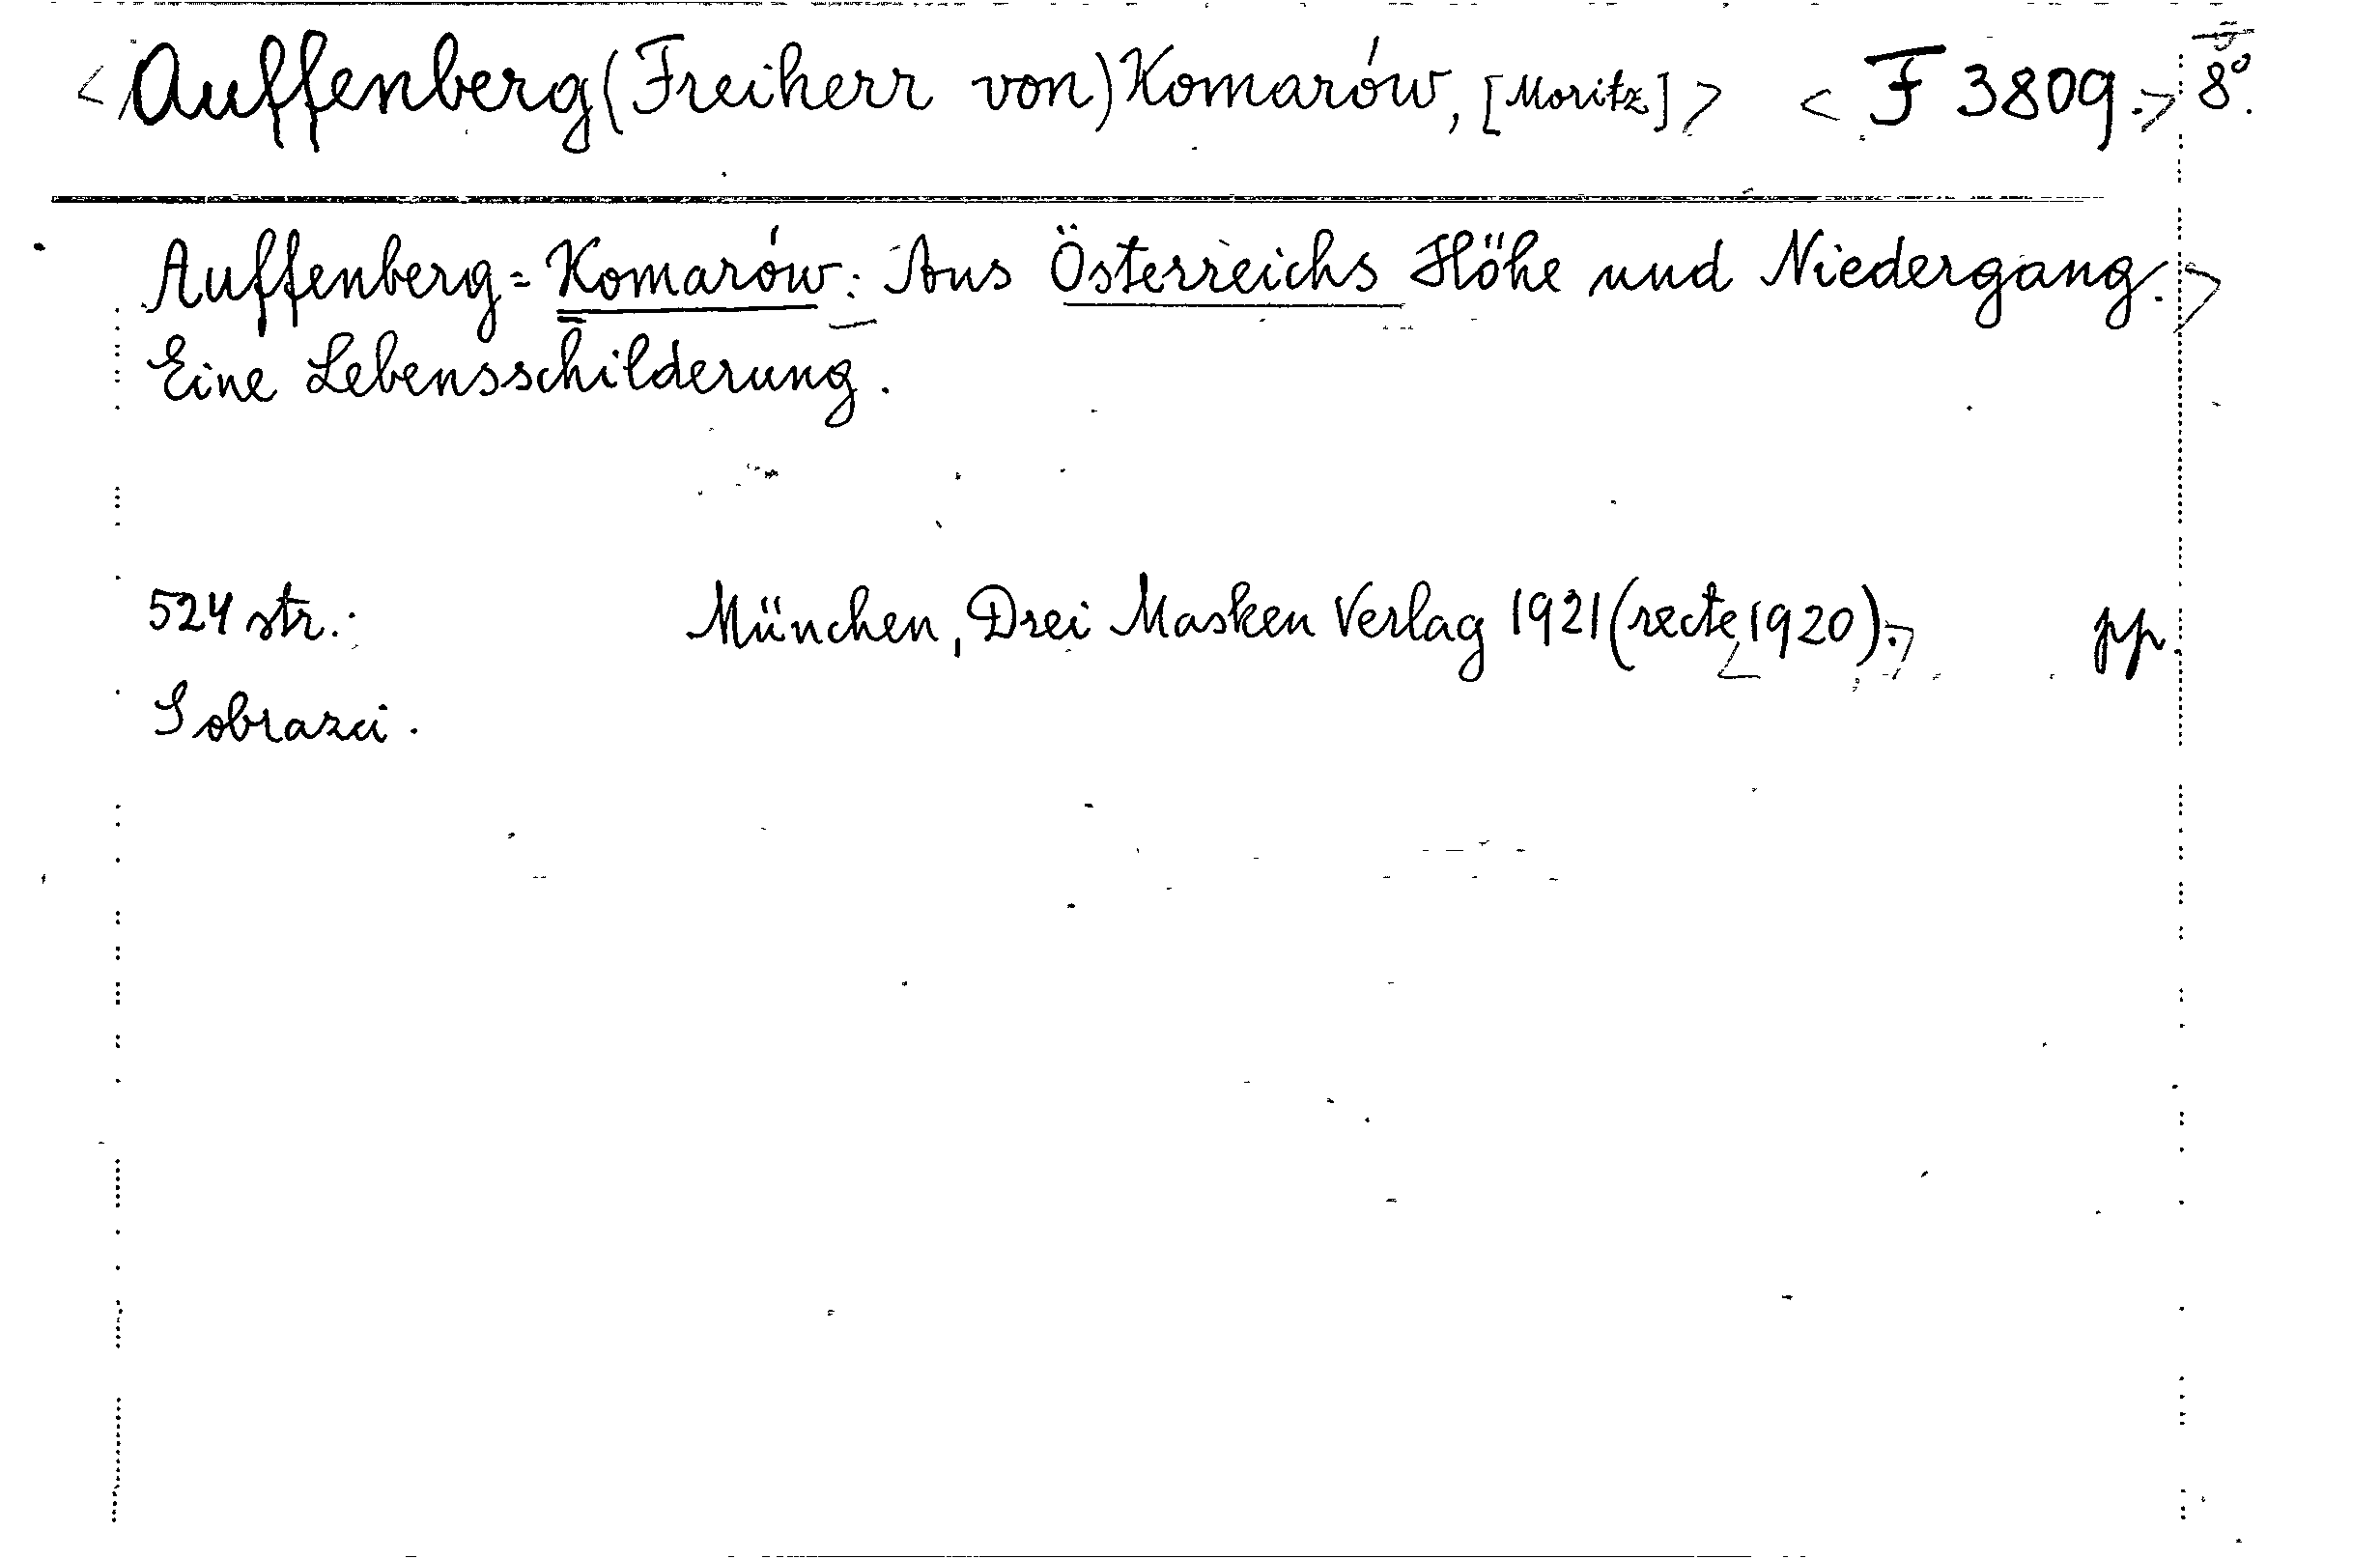 <Auffenberg (Freiherr von) Komarów, [Moritz]> <F 3809.> 8°.
Auffenberg=Komarów: Aus Österreichs Höhe und Niedergang.>
Eine Lebensschilderung.
524 str. München, Drei Masken Verlag 1921 (recte 1920).> pp.
S obrazci.